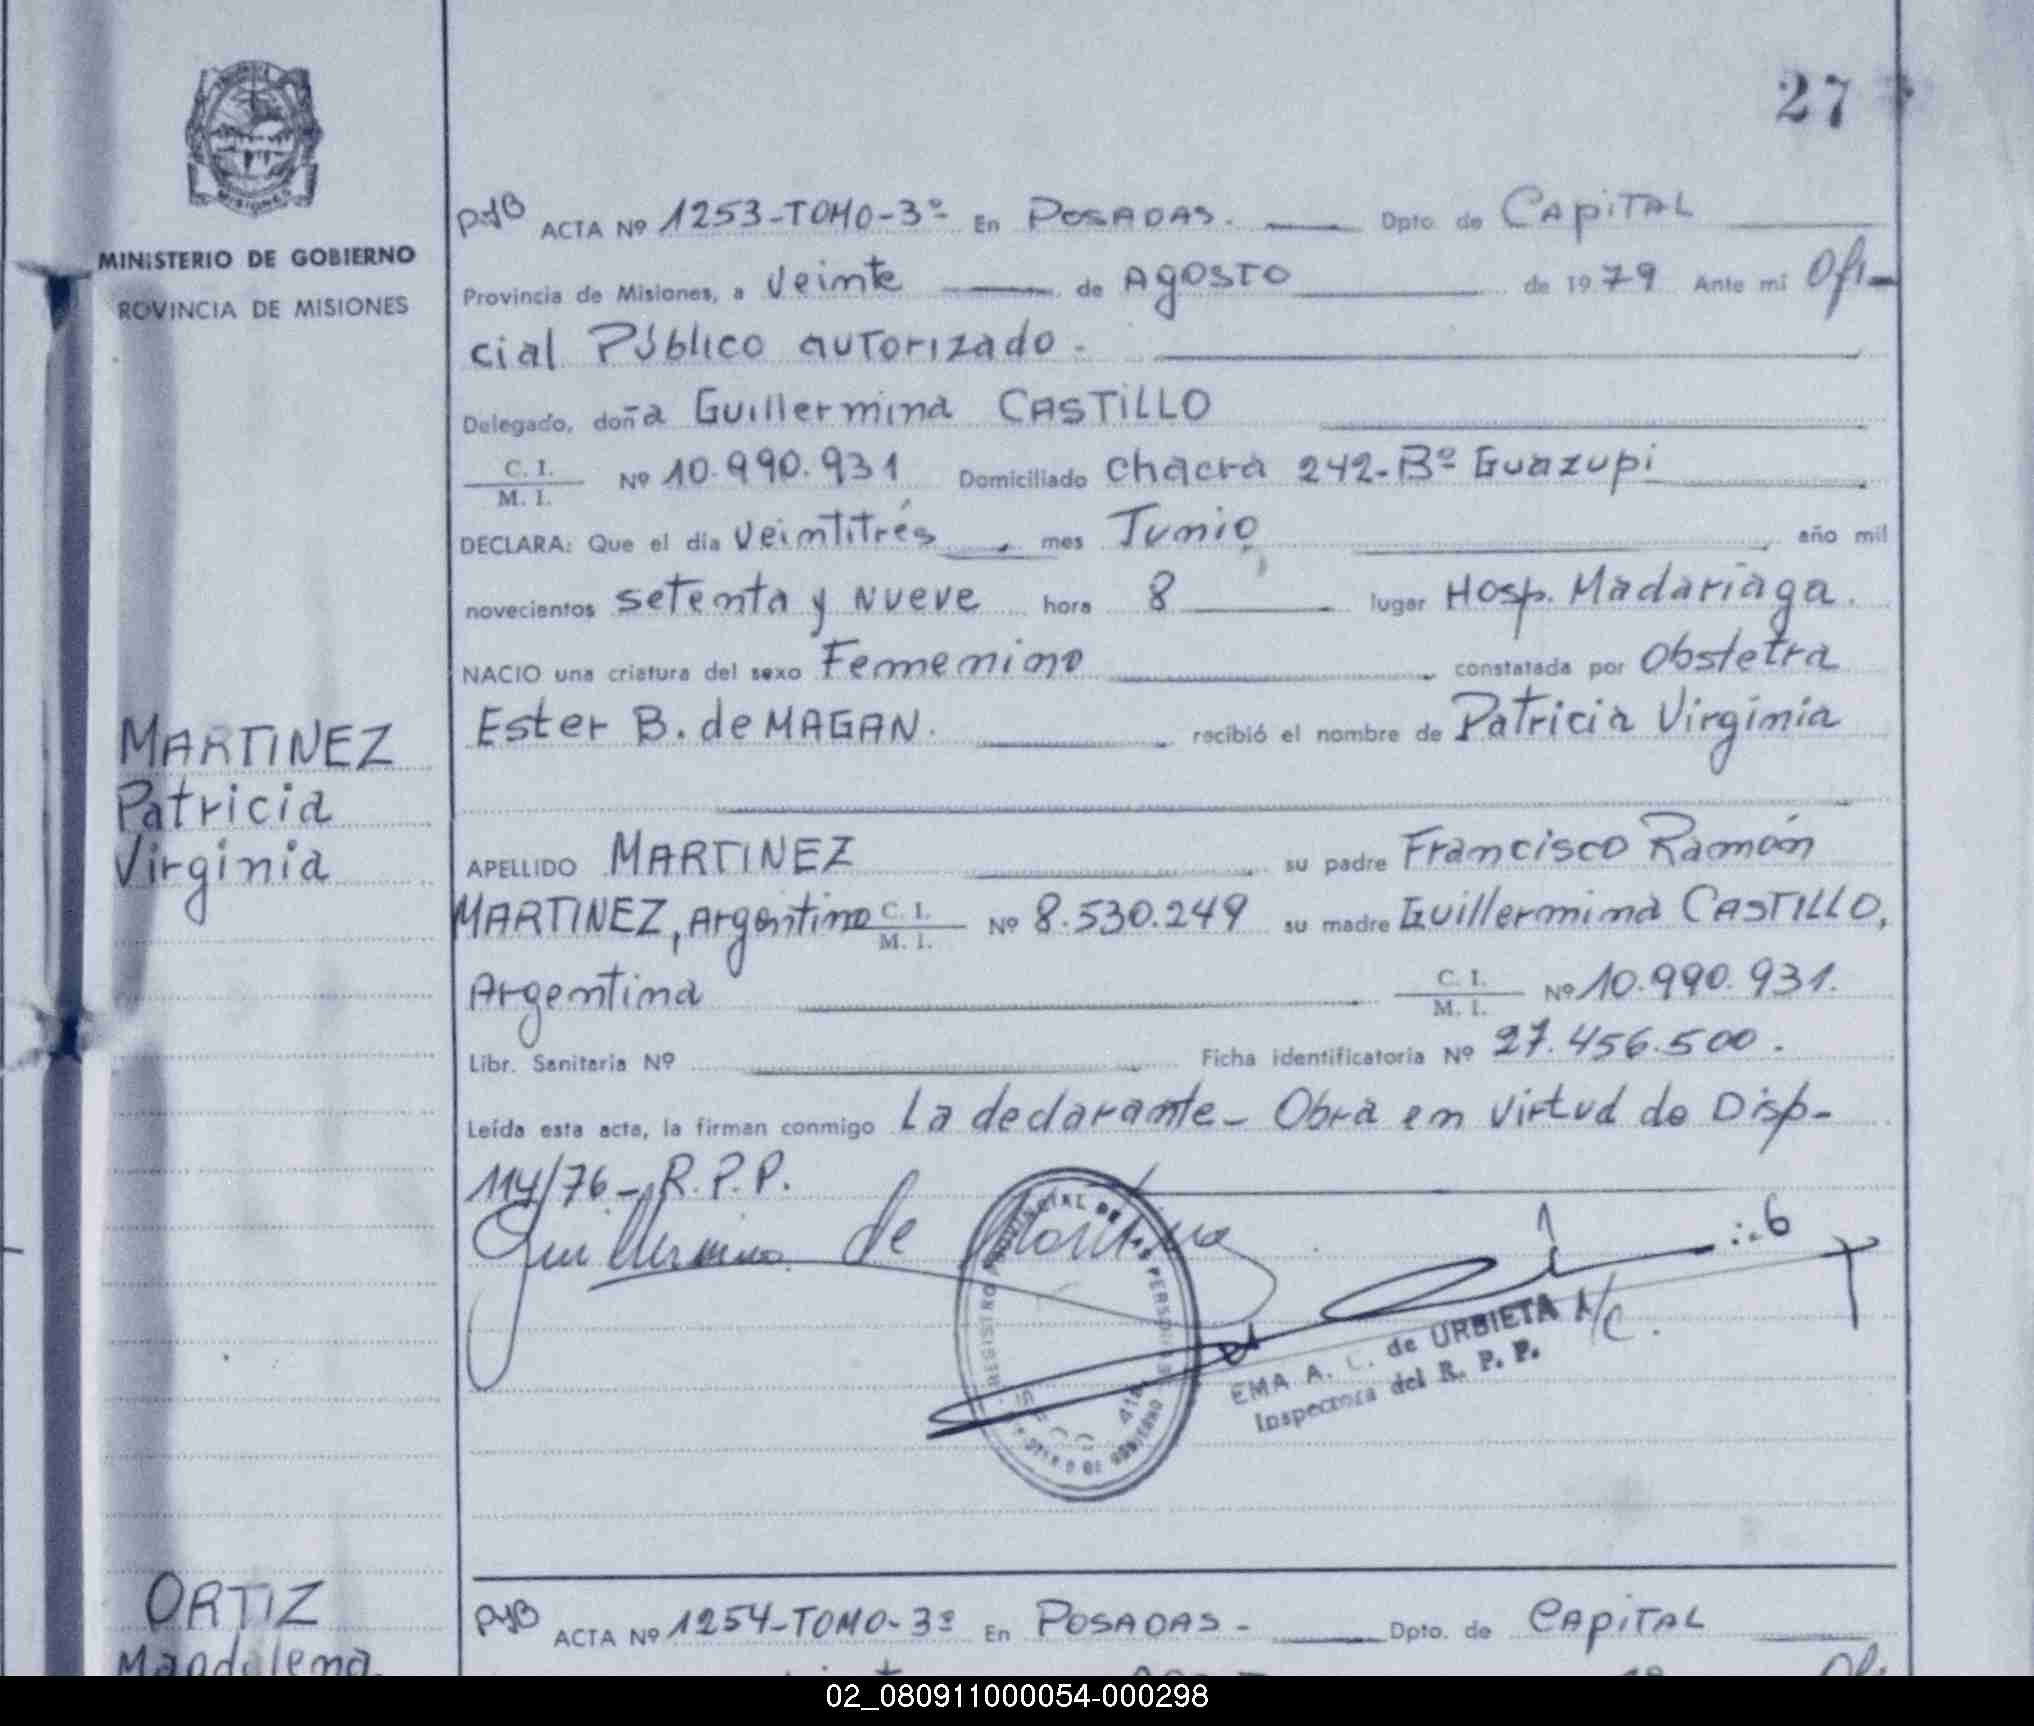 27
MINISTERIO DE GOBIERNO
ROVINCIA DE MISIONES
PyB ACTA Nº 1253-TOMO-3º- En POSADAS. Dpto. de CAPITAL
Provincia de Misiones, a Veinte de Agosto de 1979 Ante mi Ofi-
cial Público autorizado.
Delegado, doña Guillermina CASTILLO
C. I.
M. I. Nº 10.990.931 Domiciliado chacra 242-Bº Guazupi
DECLARA: Que el día Veintitrés mes Junio año mil
novecientos setenta y nueve hora 8 lugar Hosp. Madariaga.
NACIO una criatura del sexo Femenino constatada por Obstetra
Ester B. de MAGAN. recibió el nombre de Patricia Virginia
MARTINEZ
Patricia
Virginia
APELLIDO MARTINEZ su padre Francisco Ramón
MARTINEZ, Argentino C. I.
M. I. Nº 8.530.249 su madre Guillermina CASTILLO,
Argentina C. I.
M. I. Nº 10.990.931.
Libr. Sanitaria Nº Ficha identificatoria Nº 27.456.500.
Leída esta acta, la firman conmigo La declarante- Obra en virtud de Disp-
114/76- R.P.P.
Guillermina de Martinez
REGISTRO PROVINCIAL DE LAS PERSONAS
EMA A. C. de URBIETA A/C.
Inspectora del R. P. P.
ORTIZ
Magdalena
PyB ACTA Nº 1254-TOMO-3º En POSADAS- Dpto. de CAPITAL
02_080911000054-000298